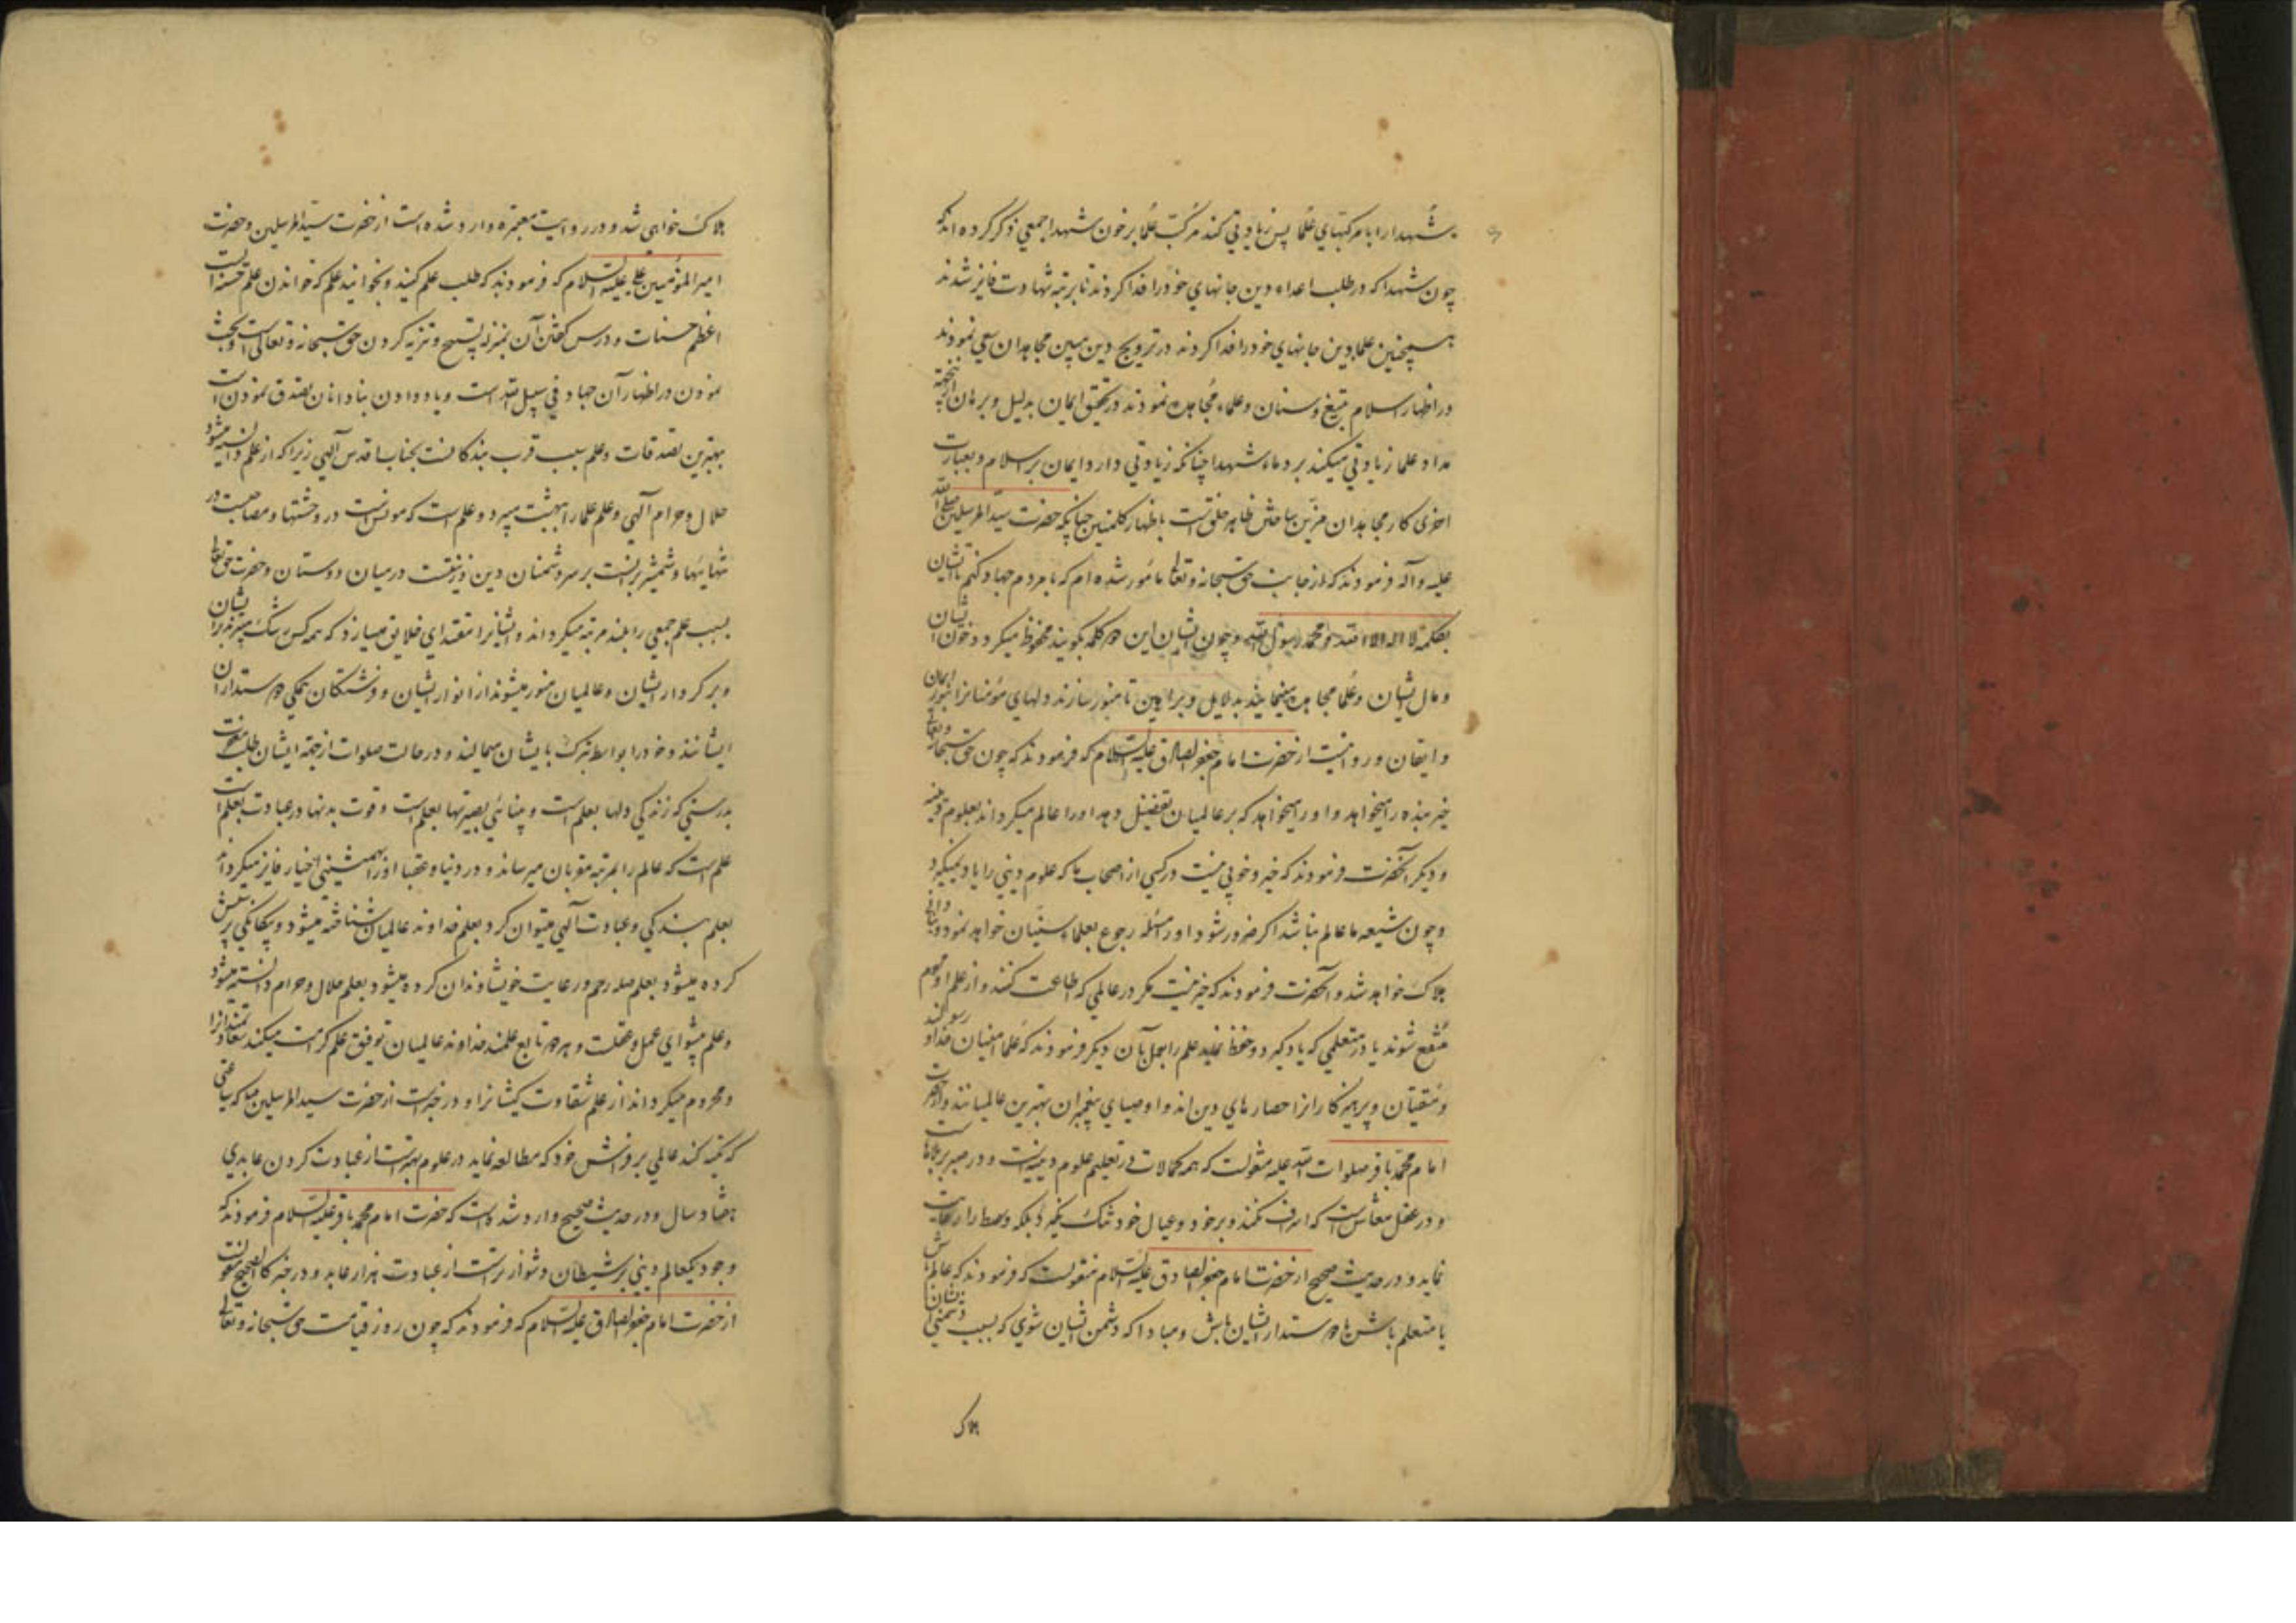 شهدا را با مرکبهای علما پس زیادتی کند مرکب علما بر خون شهدا جمعی ذکر کرده اند که
چون شهدا که در طلب اعداء دین جانهای خود را فدا کردند تا برتبه شهادت فایز شدند
همچنین علما دین جانهای خود را فدا کردند در ترویج دین مبین مجاهدان سعی نمودند
در اظهار اسلام بتیغ و سنان و علماء مجاهده نمودند در تحقق ایمان بدلیل و برهان از اینجهة
مداد علما زیادتی میکند بر دماء شهدا چنانکه زیادتی دارد ایمان بر اسلام و بعبارت
اخری کار مجاهدان مزین ساختن ظاهر خلق است باظهار کلمتین چنانکه حضرت سید المرسلین صلی الله
علیه و آله فرمودند که از جانب حق سبحانه و تعالی مامور شده ام که با مردم جهاد کنم تا ایشان
بکلمه لا اله الا الله و محمد رسول الله و چون ایشان این دو کلمه بگویند محفوظ میگردد خون ایشان
و مال ایشان و علما مجاهده مینمایند بدلایل و براهین تا منور سازند دلهای مؤمنانرا بنور ایمان
و ایقان و روایتست از حضرت امام جعفر الصادق علیه السلام که فرمودند که چون حق سبحانه و تعالی
خیر بنده را میخواهد و او را میخواهد که بر عالمیان تفضیل دهد او را عالم میگرداند بعلوم دینیه
و دیگر آنحضرت فرمودند که خیر و خوبی نیست در کسی از اصحاب ما که علوم دینی را یاد نمیگیرد
و چون شیعه ما عالم نباشد اگر ضرور شود او را مسئله رجوع بعلماء سنیان خواهد نمود و
هلاک خواهد شد و آنحضرت فرمودند که خیر نیست مگر در عالمی که اطاعت کنند و از علم او مردم
منتفع شوند یا در متعلمی که یاد گیرد و حفظ نماید علم را بعمل بآن دیگر فرمودند که علما امینان خدا و رسولند
و متقیان و پرهیزکاران حصارهای دین اند و اوصیای پیغمبران بهترین عالمیانند و از حضرت
امام محمد باقر صلوات الله علیه منقولست که همه کمالات در تعلیم علوم دینیه است و در صبر بر بلاهاست
و در عقل معاش است که اسراف نکند و بر خود و عیال خود تنگ نگیرد بلکه وسط را رعایت
نماید و در حدیث صحیح از حضرت امام جعفر الصادق علیه السلام منقولست که فرمودند که عالم باش
یا متعلم باش یا دوستدار ایشان باش و مبادا که دشمن ایشان شوی که بسبب دشمنی ایشان
هلاک
هلاک خواهی شد و در روایت معتبره وارد شده است از حضرت سید المرسلین و حضرت
امیر المؤمنین علی علیه السلام که فرمودند که طلب علم کنید و بخوانید علم که خواندن علم حسنه است
اعظم حسنات و درس گفتن آن بمنزله تسبیح و تنزیه کردن حق سبحانه و تعالی است و بحث
نمودن در اظهار آن جهاد فی سبیل الله است و یاد دادن بنادانان تصدق نمودن است
بهترین تصدقات و علم سبب قرب بندگانست بجناب اقدس آلهی زیرا که از علم دانسته میشود
حلال و حرام آلهی و علم علما را ببهشت میبرد و علم است که مونس است در وحشتها و مصاحبست در
تنهائیها و شمشیر برانست بر سر دشمنان دین و زینتست در میان دوستان و حضرت حق تعالی
بسبب علم جمعی را بلند مرتبه میگرداند و ایشانرا مقتدای خلایق میسازد که همه کس
و بر کردار ایشان و عالمیان منور میشوند از انوار ایشان و فرشتگان همگی دوستدار ان
ایشانند و خود را بواسطه تبرک بایشان میمالند و در حالت صلوات از جهة ایشان طلب مغفرت
بدرستی که زندگی دلها بعلم است و بینائی بصیرتها بعلم است و قوت بدنها در عبادت بعلم است
علم است که عالم را بمرتبه مقربان میرساند و در دنیا و عقبا او را بهمنشینی اخیار فایز میگرداند
بعلم بندگی و عبادت آلهی میتوان کرد بعلم خداوند عالمیان شناخته میشود و بیگانگی پرستش
کرده میشود بعلم صله رحم و رعایت خویشاوندان کرده میشود بعلم حلال و حرام دانسته میشود
و علم پیشوای عمل و عقلست و هر دو تابع علمند خداوند عالمیان توفیق علم کرامت میکند سعادتمندانرا
و محروم میگرداند از علم شقاوت کیشانرا و در خبر است از حضرت سید المرسلین که ساعتی
که تکیه کند عالمی بر فراش خود که مطالعه نماید در علوم بهتر است از عبادت کردن عابدی
هفتاد سال و در حدیث صحیح وارد شده است که حضرت امام محمد باقر علیه السلام فرمودند که
وجود یکعالم دینی بر شیطان دشوارتر است از عبادت هزار عابد و در خبر کالصحیح منقولست
از حضرت امام جعفر الصادق علیه السلام که فرمودند که چون روز قیامت حق سبحانه و تعالی